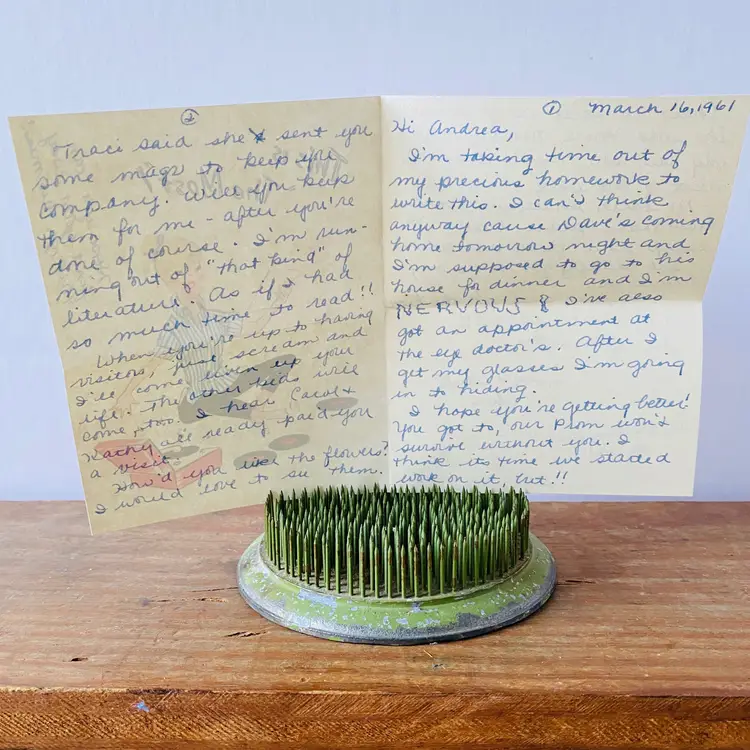 ① March 16, 1961
Hi Andrea,
I'm taking time out of
my precious homework to
write this. I can't think
anyway cause Dave's coming
home tomorrow night and
I'm supposed to go to his
house for dinner and I'm
NERVOUS! I've also
got an appointment at
the eye doctor's. After I
get my glasses I'm going
in to hiding.
I hope you're getting better!
You got to, our prom won't
survive without you. I
think its time we started
work on it, but!!
②
Traci said she sent you
some magz to keep you
company. Will you keep
them for me - after you're
done of course. I'm run-
ning out of "that kind" of
literature. As if I had
so much time to read!!
When you're up to having
visitors, just scream and
I'll come liven up your
life. The other kids will
come, too. I hear Carol +
Kathy all ready paid you
a visit.
How'd you like the flowers?
I would love to see them.